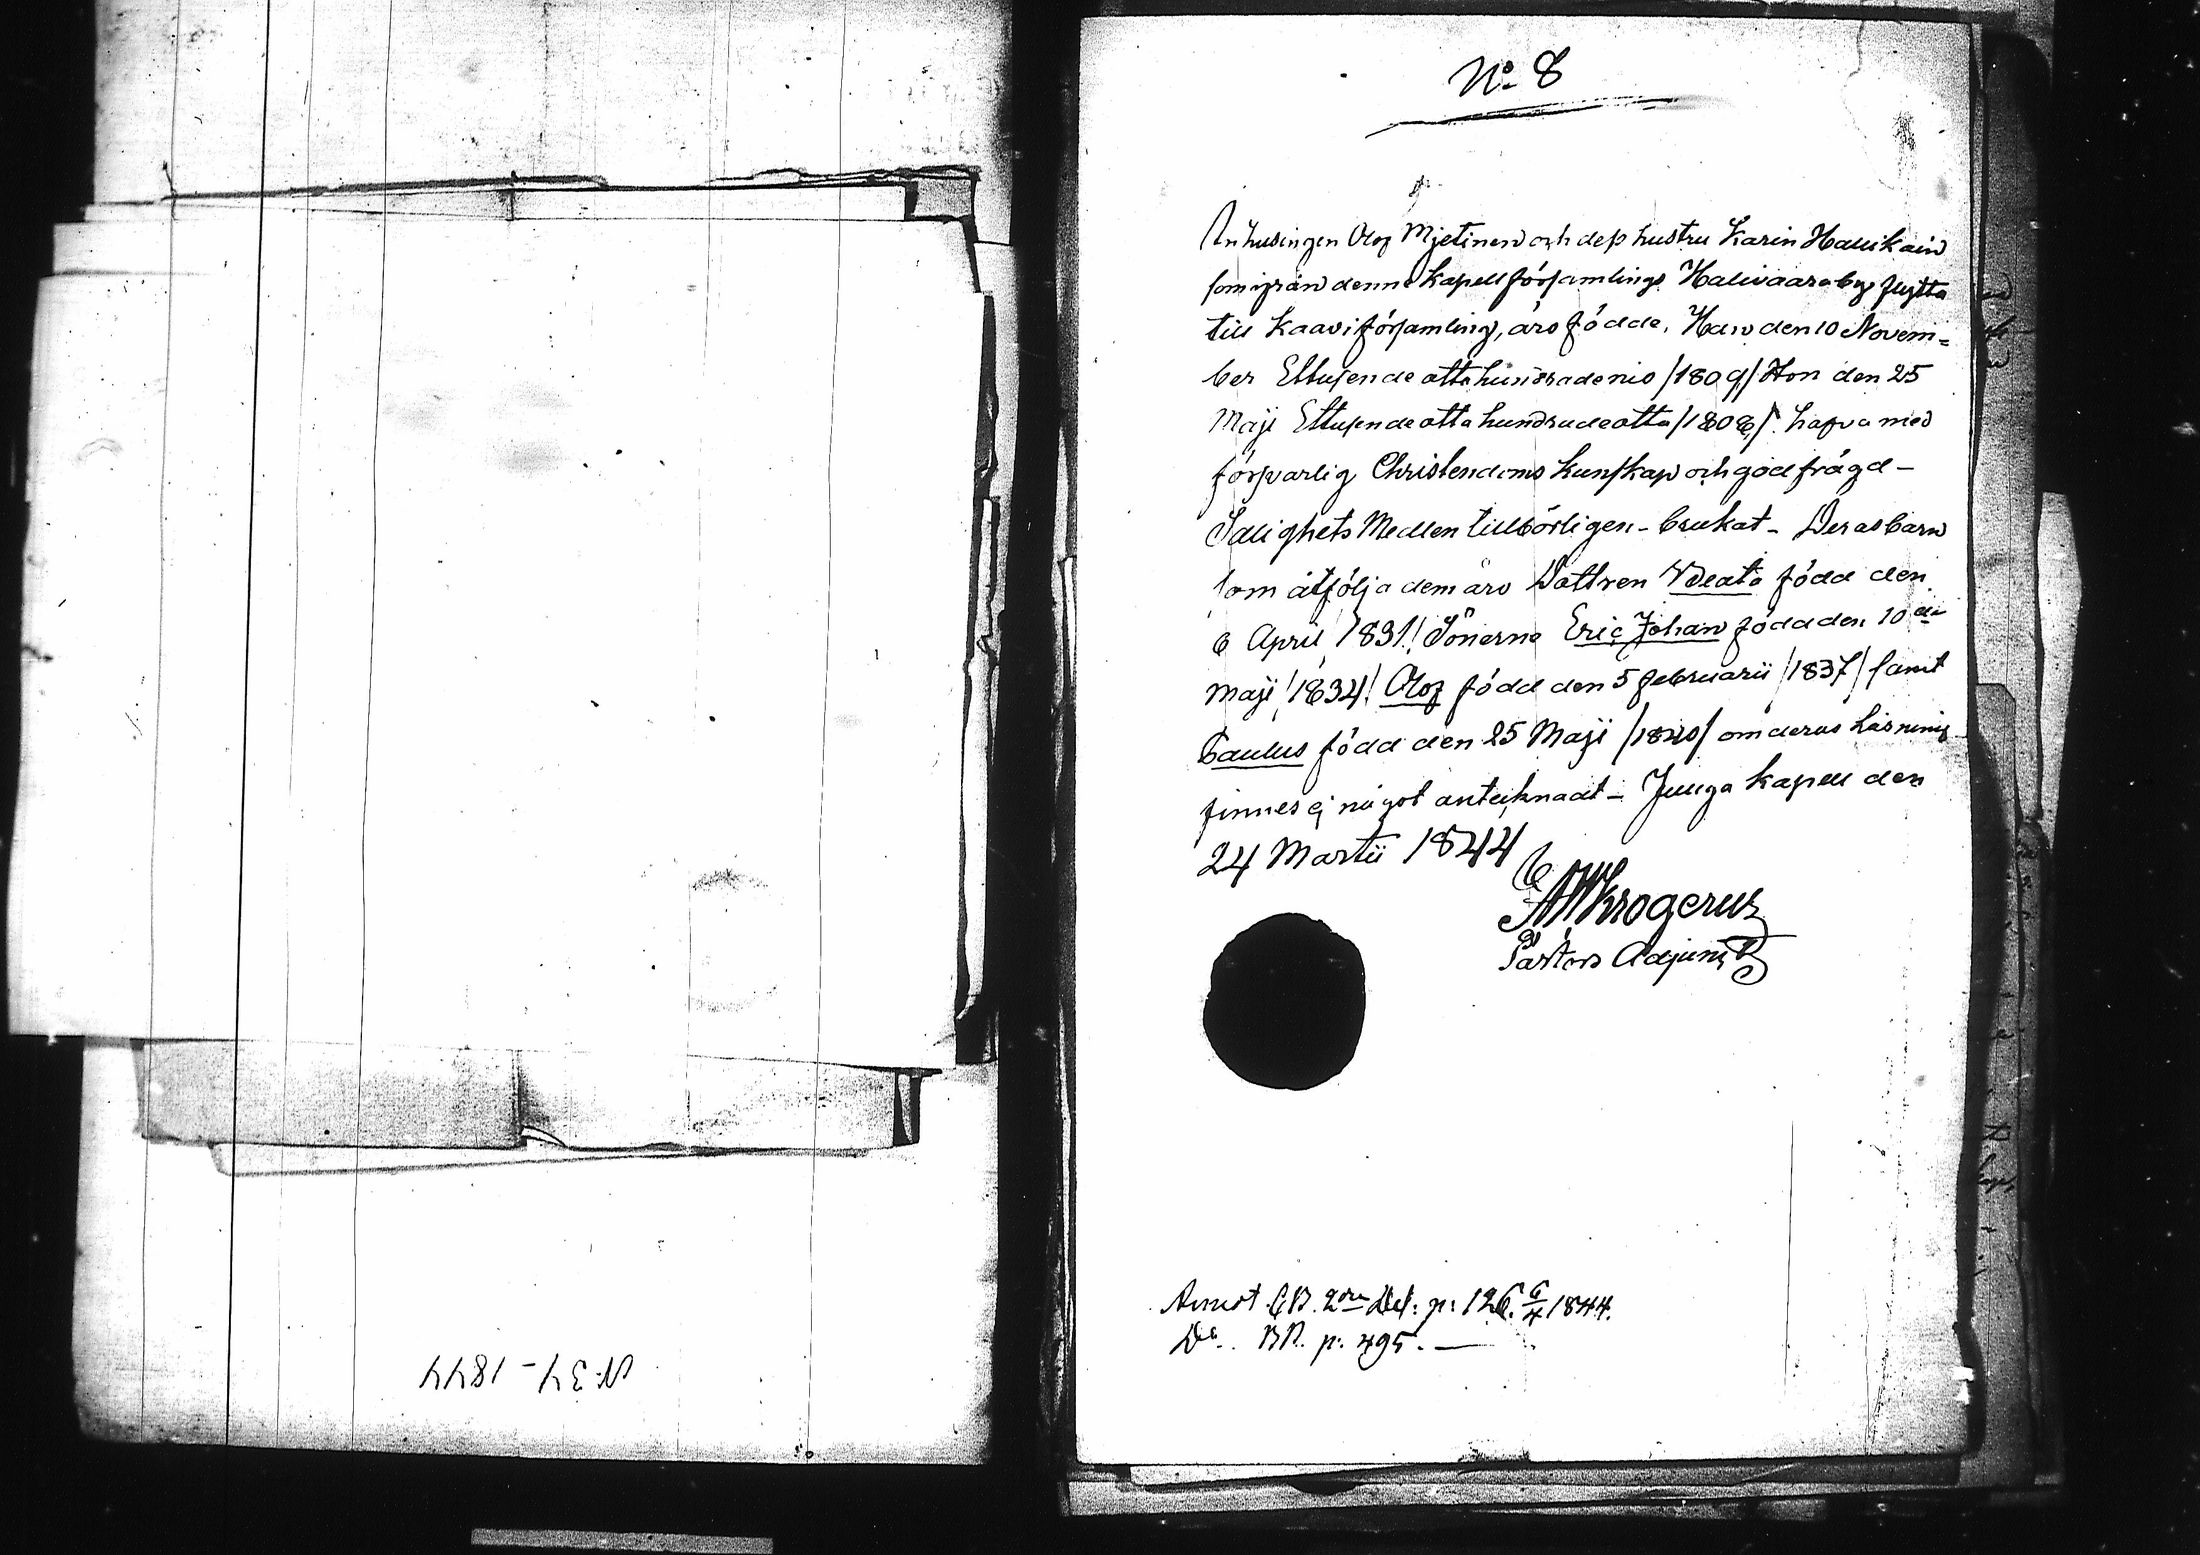 No 8
Inhusingen Olof Mjetinen och dess hustru Karin Hallikain
som ifrån denne kapellförsamlings Halivaara by flytta
till Kaavi församling, äro födde, Han den 10 Novem=
ber Ettusende ottahundradenio /1809/ Hon den 25
Maji Ettusende otta hundradeotta /1808/. hafva med
försvarlig Christendoms kunskap och god frägd –
Salighets Medlen tillbörligen – brukat – Deras barn
som åtfölja dem äro Dottren Beata född den
6 April /1831/ Sönerne Eric Johan född den 10de
Maji /1834/ Olof född den 5 februarii /1837/ samt
Paulus född den 25 Maji /1840/ om deras Läsning
finnes ej något anteiknadt – Juuga kapell den
24 Martii 1844
Krogerus
Pastors Adjunct
Annot CB. 2dra Del: p: 126. 6/4 1844.
Do. BR. p: 495. —
N: 34 – 1844